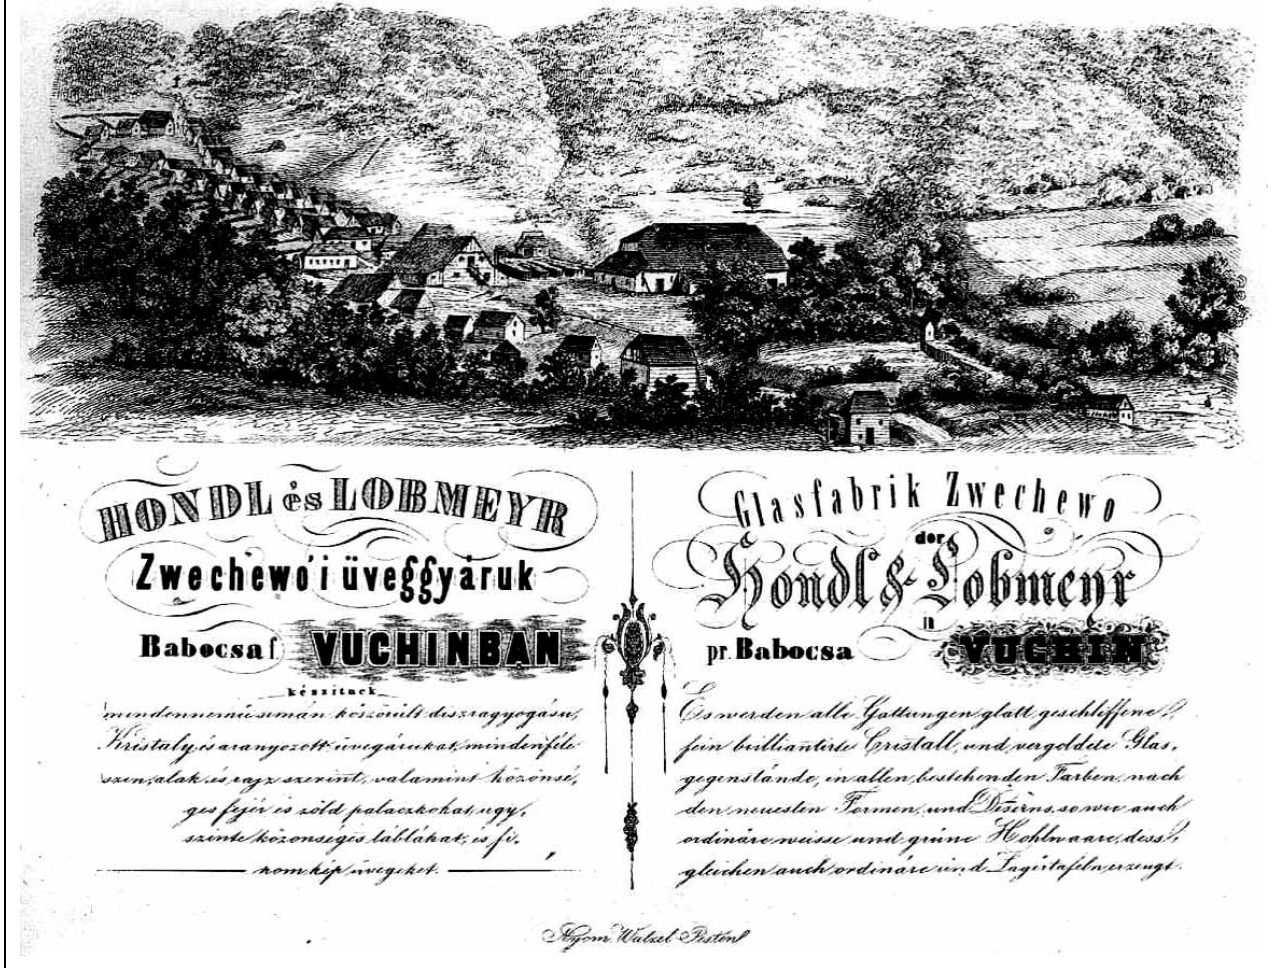 HONDL és LOBMEYR
Zwechewo'i üveggyáruk
Babocsa f. VUCHINBAN
készitnek
mindennemü simán köszörült diszragyogásu,
Kristaly és aranyozott üvegárukat mindenféle
szin, alak és rajz szerint, valamint közönsé,
ges fejér és zöld palaczkokat, ugy,
szinte közönséges táblákat, és fi,
nom kép üvegeket.
Glasfabrik Zwechewo
der
Hondl & Lobmeyr
in
pr. Babocsa VUCHIN
Es werden alle Gattungen glatt geschliffene,
fein brilliantirte Cristall, und vergoldete Glas,
gegenstände, in allen bestehenden Farben, nach
den neuesten Formen, und Diseins, so wie auch
ordinäre weisse und grüne Hohlwaare, dess,
gleichen auch ordinäre und Lagertafeln erzeugt.
Nyom. Walzel Pesten